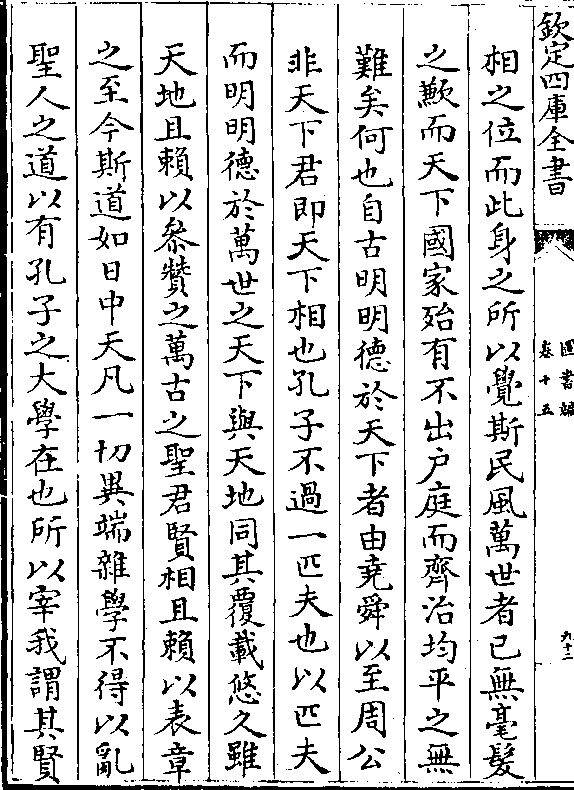 欽定四庫全書
圖書編
卷十五
九十二
相之位而此身之所以覺斯民風萬世者已無毫髮
之歉而天下國家殆有不出户庭而齊治均平之無
難矣何也自古明明德於天下者由堯舜以至周公
非天下君即天下相也孔子不過一匹夫也以匹夫
而明明德於萬世之天下與天地同其覆載悠久雖
天地且賴以叅贊之萬古之聖君賢相且賴以表章
之至今斯道如日中天凡一切異端雜學不得以亂
聖人之道以有孔子之大學在也所以宰我謂其賢